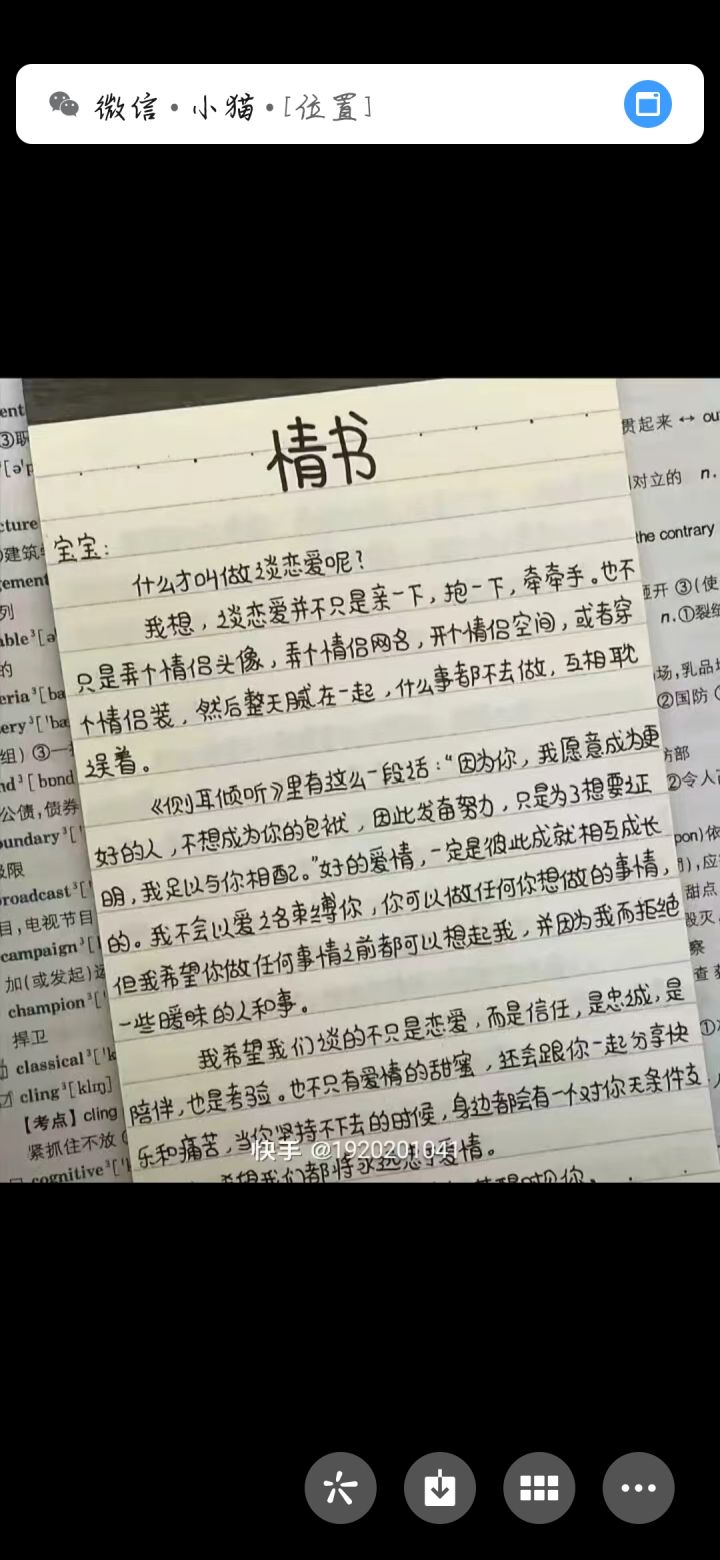 微信·小猫·[位置]
情书
宝宝：
什么才叫做谈恋爱呢？
我想，谈恋爱并不只是亲一下，抱一下，牵牵手。也不
只是弄个情侣头像，弄个情侣网名，开个情侣空间，或者穿
个情侣装，然后整天腻在一起，什么事都不去做，互相耽
误着。
《侧耳倾听》里有这么一段话：“因为你，我愿意成为更
好的人，不想成为你的包袱，因此发奋努力，只是为了想要证
明，我足以与你相配。”好的爱情，一定是彼此成就相互成长
的。我不会以爱之名束缚你，你可以做任何你想做的事情，
但我希望你做任何事情之前都可以想起我，并因为我而拒绝
一些暧昧的人和事。
我希望我们谈的不只是恋爱，而是信任，是忠诚，是
陪伴，也是考验。也不只有爱情的甜蜜，还会跟你一起分享快
乐和痛苦，当你坚持不下去的时候，身边都会有一个对你无条件支
希望我们都将永远忠于爱情。
快手 @1920201041
ent
③职
['ə'p
cture
建筑
gement
列
able³[ə
的
eria³[ba
ery³['ba
组) ③一
nd³[bɒnd
公债,债券
oundary³['
极限
broadcast³['
目,电视节目
campaign³[
加(或发起)运
champion³['
捍卫
classical³['k
cling³[klɪŋ]
【考点】cling
紧抓住不放
cognitive³['k
贯起来 ↔ ou
对立的 n.
the contrary
③(使
n.①裂
场,乳品
②国防
防部
②令人
pon)依
应
甜点
毁灭
察
查